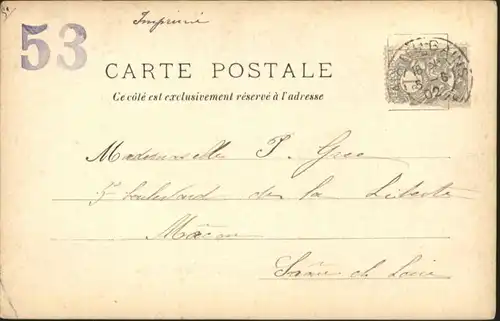 Imprimé
53
CARTE POSTALE
Ce côté est exclusivement réservé à l'adresse
Mademoiselle P.
5 boulevard de la Liberté
Mâcon
Saône et Loire